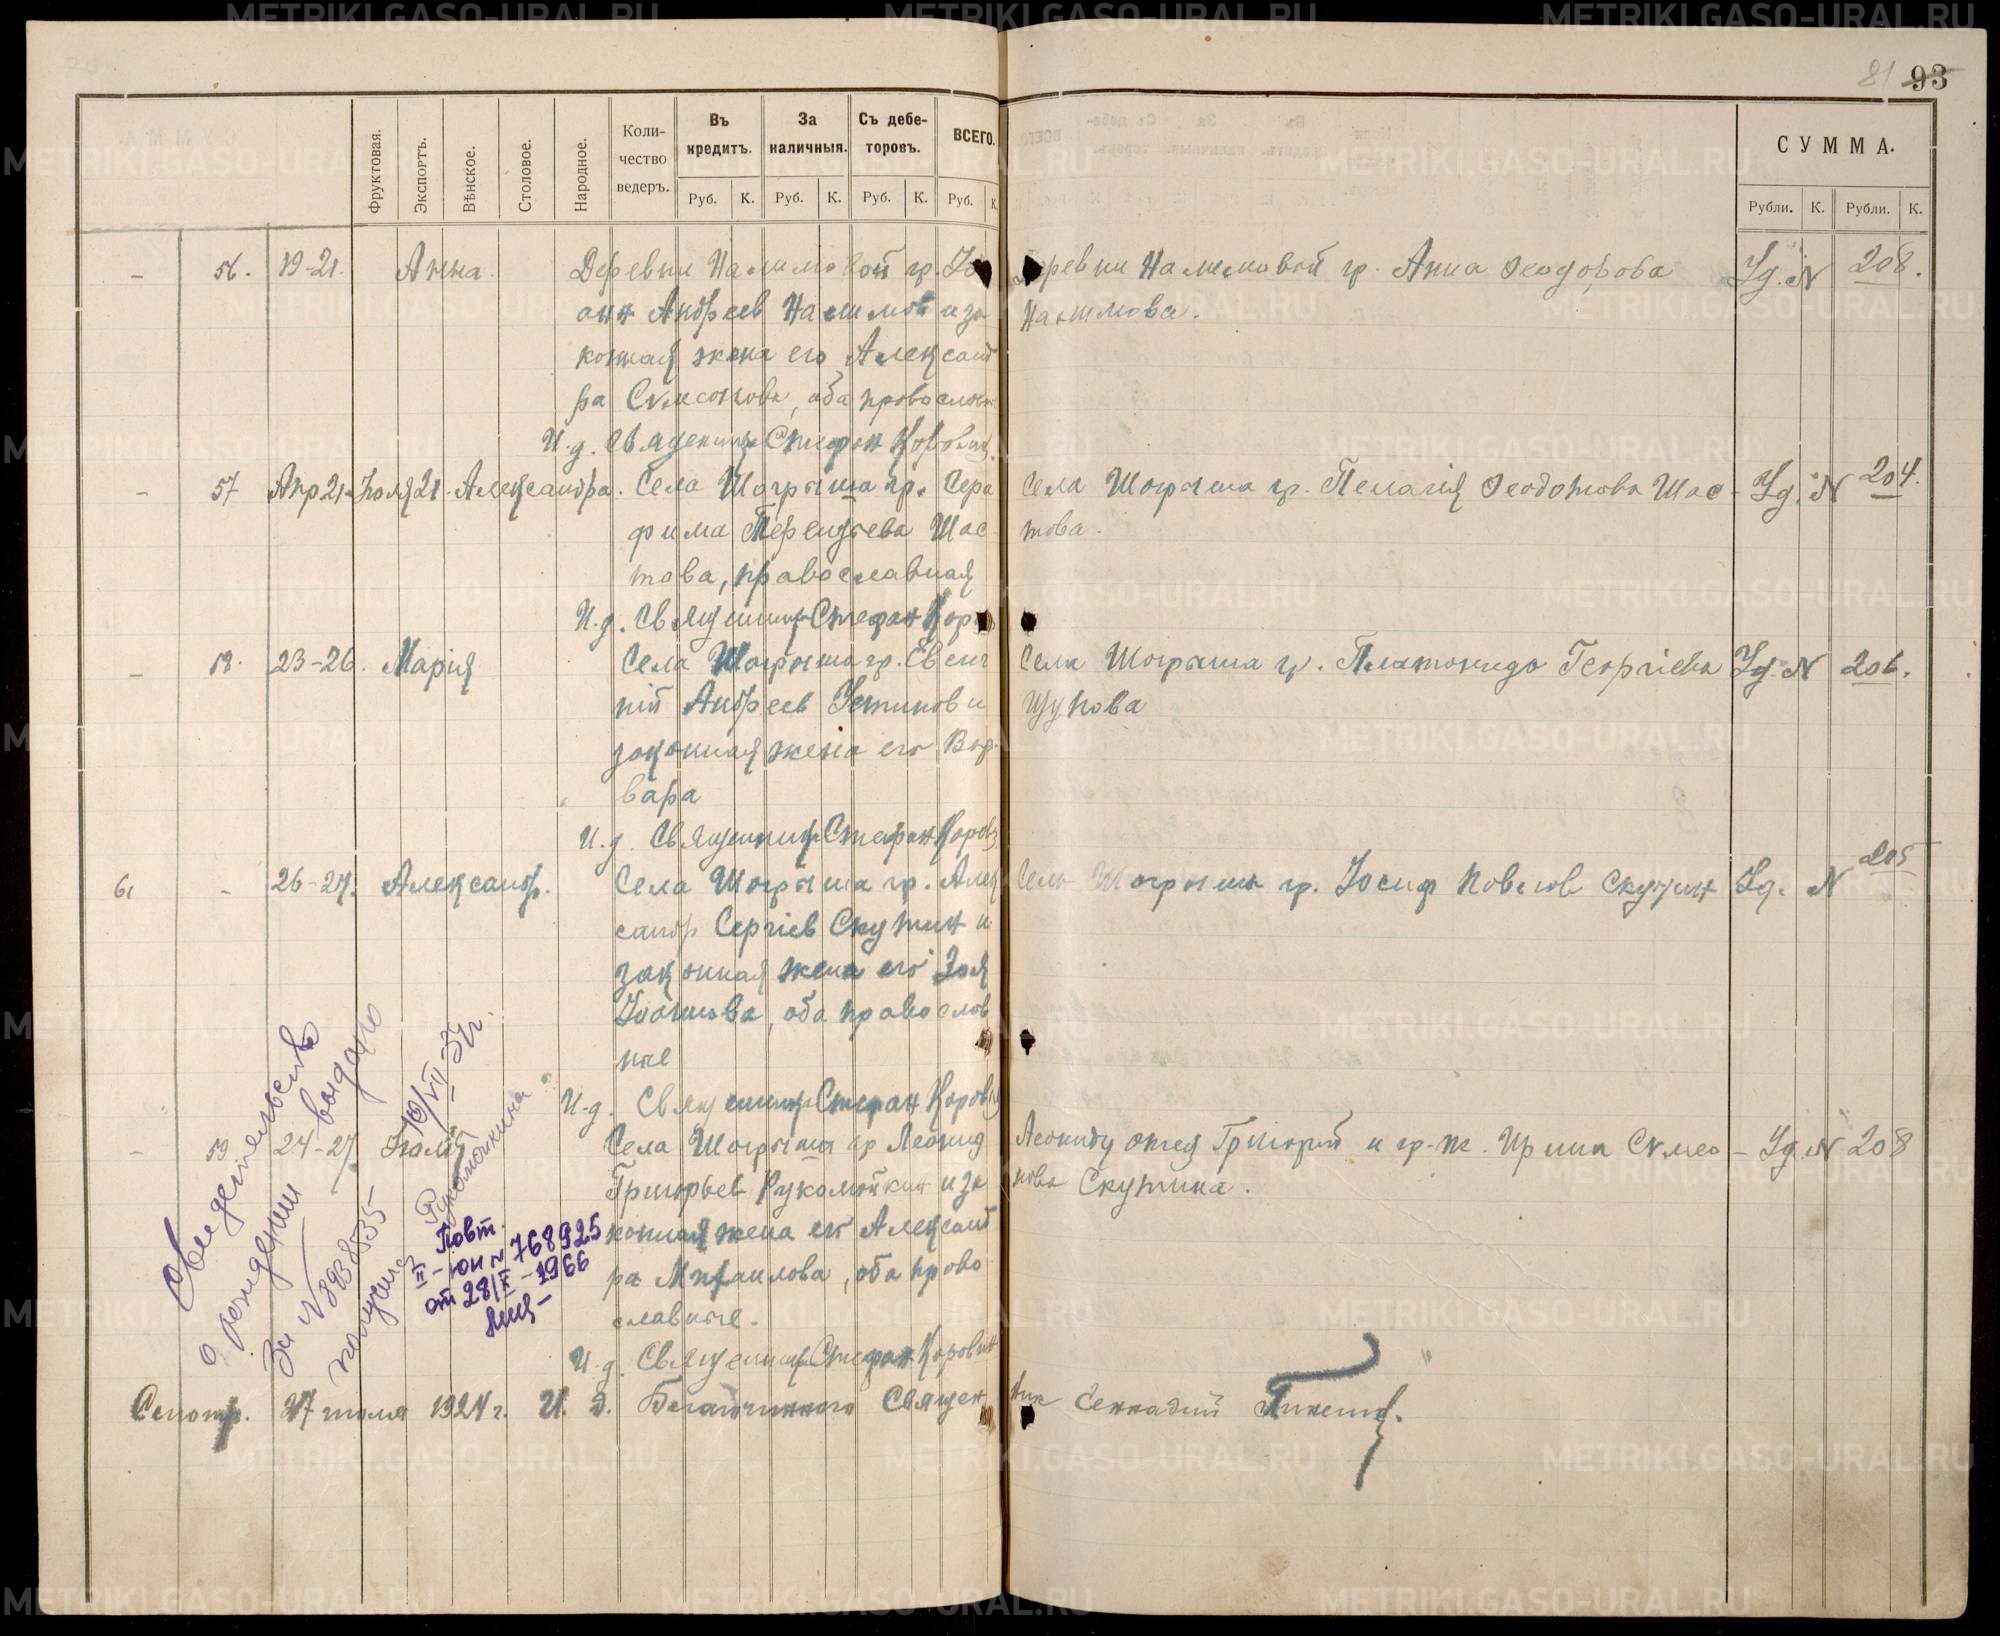 81 93
Фруктовая. Экспортъ. Вѣнское. Столовое. Народное. Коли-чество ведеръ. Въ кредитъ. За наличныя. Съ дебе-торовъ. ВСЕГО. СУММА.
Руб. К. Руб. К. Руб. К. Руб. К. Рубли. К. Рубли. К.
– 56. 19-21. Анна. Деревни Налимовой гр. Іо
анн Андреев Налимов и за
конная жена его Александ
ра Симеонова, оба православн
И.д. Священник Стефан Коровин
Деревни Налимовой гр. Анна Феодорова
Налимова.
Уд. N 208.
– 57 Апр 21- Іюля 21. Александра. Села Шогрыша гр. Сера
фима Терентьева Шас
това, православная
И.д. Священник Стефан Коров
Села Шогрыша гр. Пелагія Феодотова Шас-
това.
Уд. N 204.
– 58. 23-26. Марія Села Шогрыша гр. Евген
ній Андреев Устинов и
законная жена его Вар
вара
И.д. Священник Стефан Коров
Села Шогрыша гр. Платонида Георгіева
Щукова
Уд. N 206.
61 – 26-27. Александр. Села Шогрыша гр. Алек
сандр Сергіев Скутин и
законная жена его Зоя
Иоаннова, оба православ
ные
И.д. Священник Стефан Коров
Села Шогрыша гр. Іосиф Павлов Скутин
Уд. N 205
– 59 24-27. Села Шогрыша гр Леонид
Григорьев Рукомойкин и за
конная жена его Александ
ра Михаилова, оба право
славные.
И.д. Священник Стефан Коровин
Леониду отец Григорий и гр-ж. Ирина Симео-
нова Скутина.
Уд. N 208
Свидетельство
о рождении выдано
За N 8938535 10/VII-37г.
получила Рукомойкина
Повт.
II-ЮИ N 768925
от 28/X-1966
Смотр. 27 июля 1924 г. И. д. Благочинного Священ
ник Геннадий
METRIKI.GASO-URAL.RU